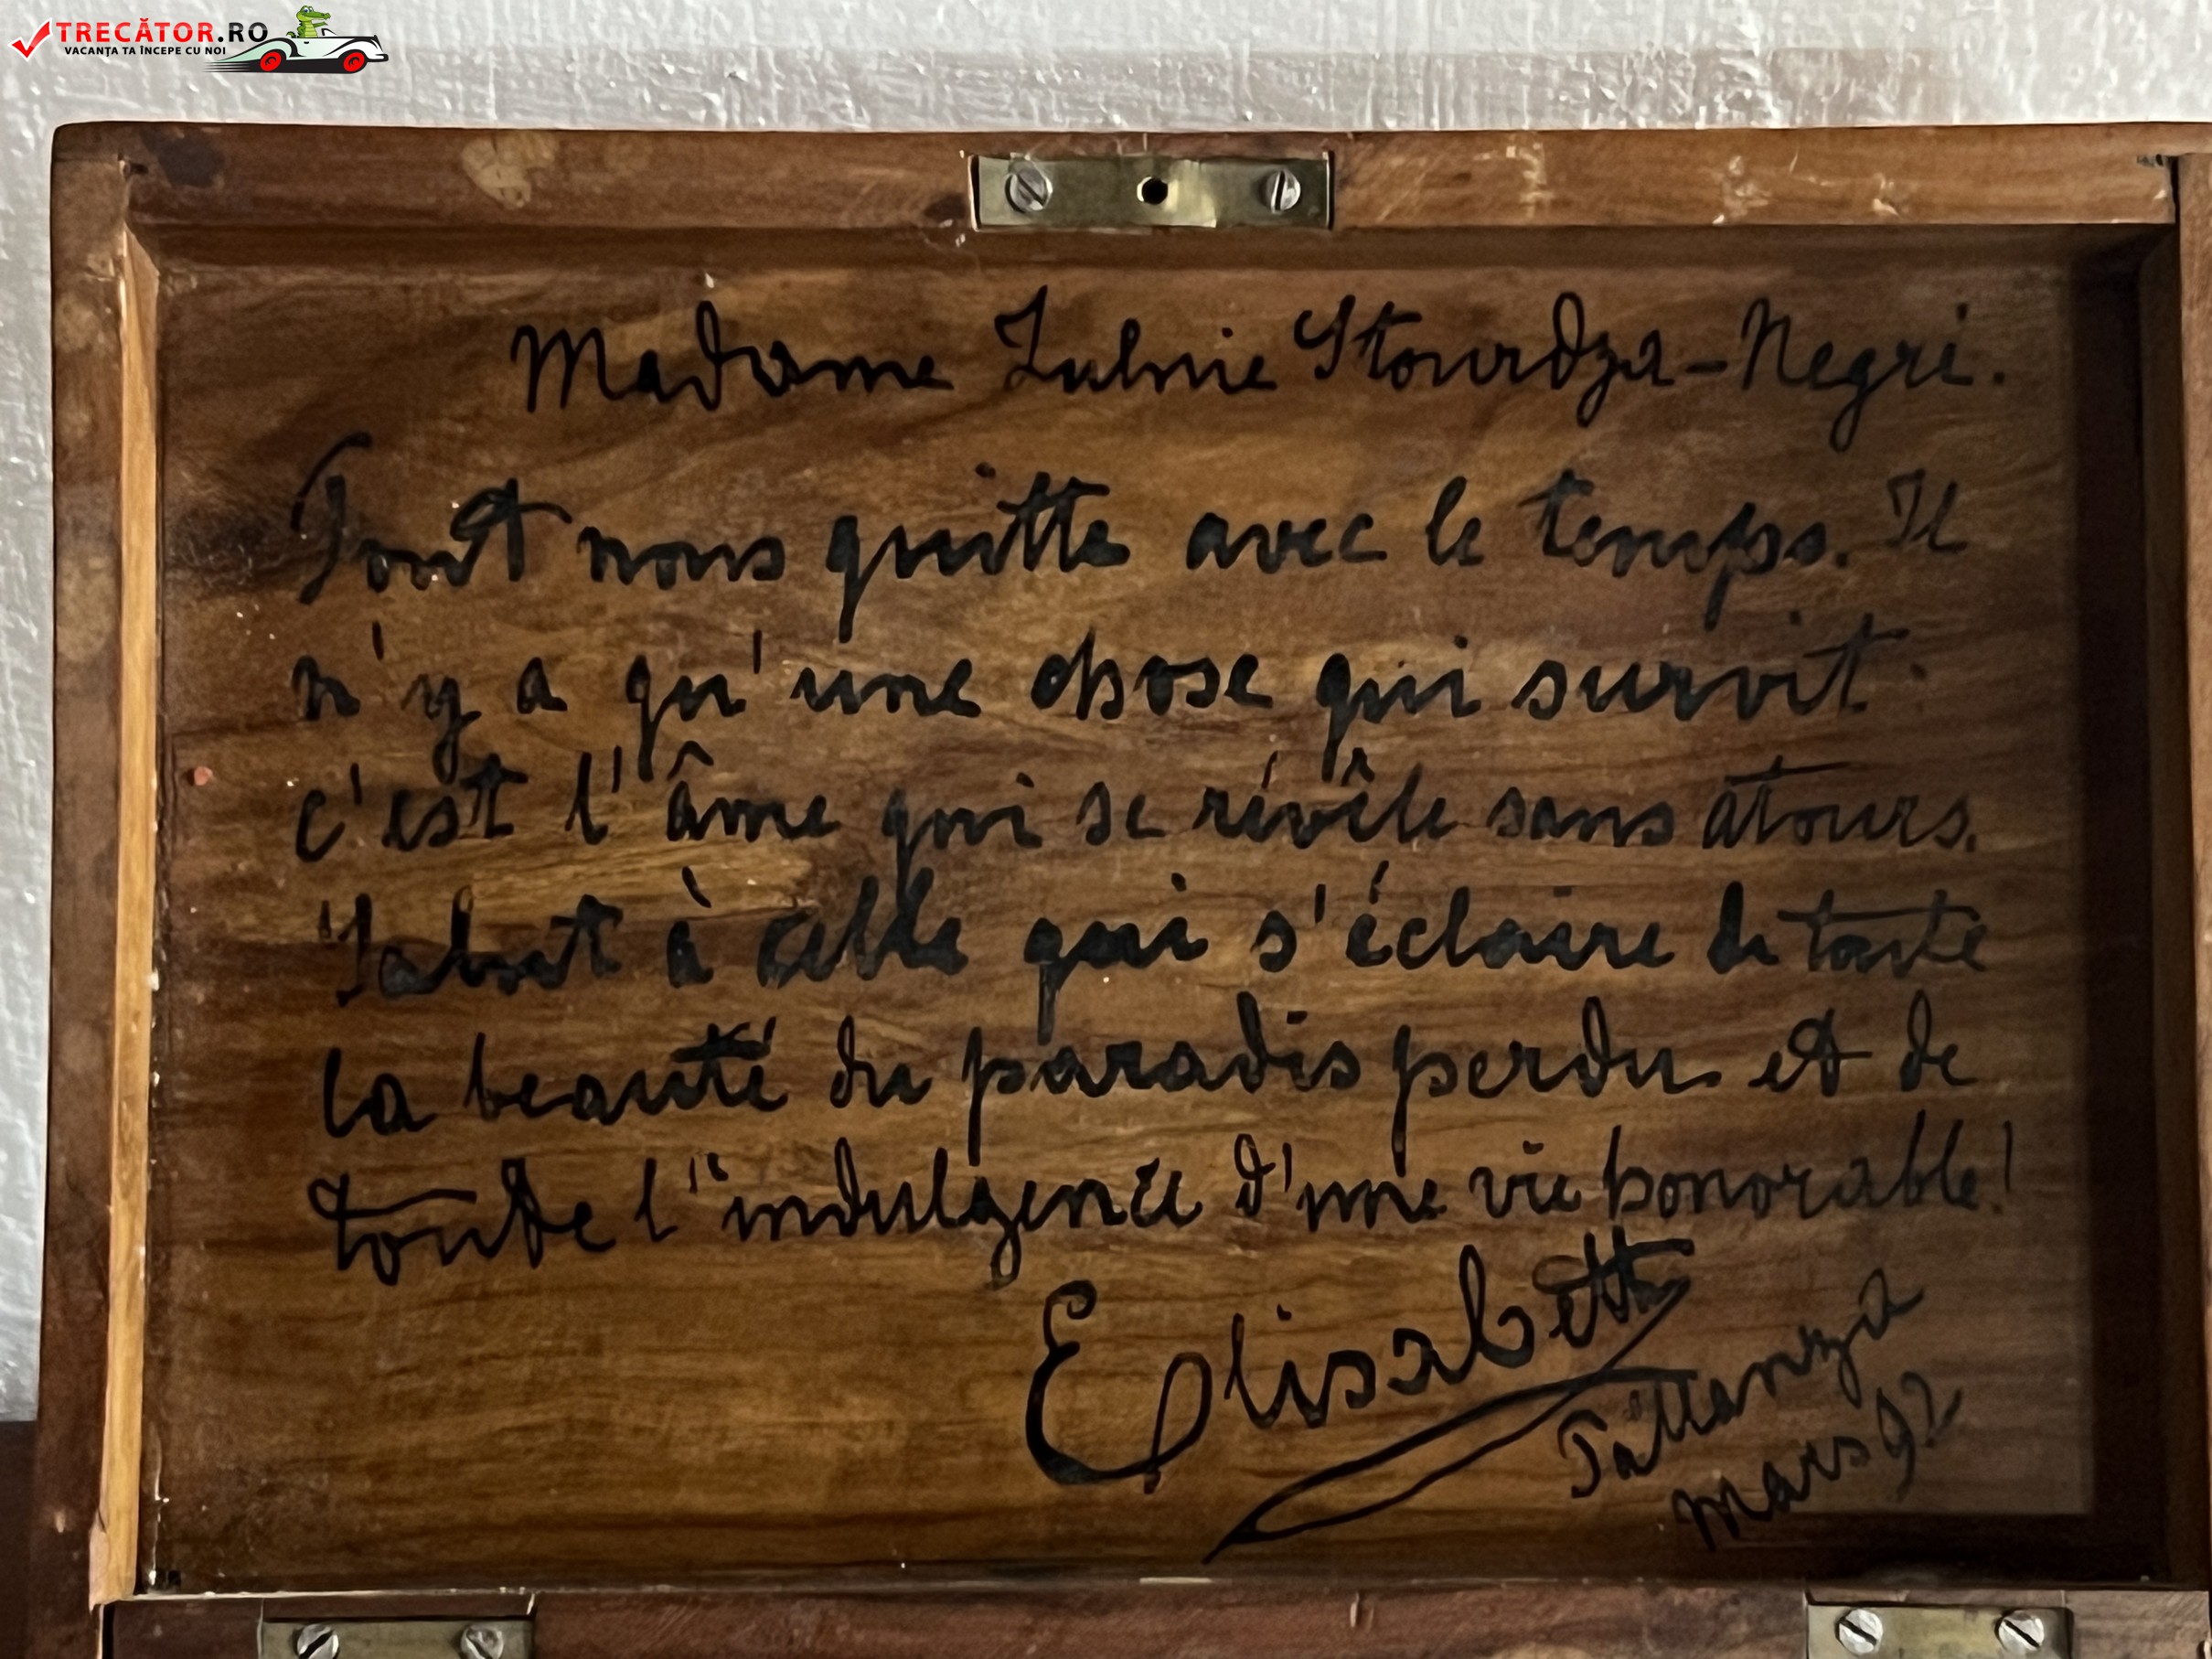 TRECĂTOR.RO
VACANȚA TA ÎNCEPE CU NOI
Madame Zulnie Stourdza-Negri.
Tout nous quitte avec le temps. Il
n'y a qu'une chose qui survit:
c'est l'âme qui se révèle sans atours.
Salut à celle qui s'éclaire de toute
la beauté du paradis perdu et de
toute l'indulgence d'une vie honorable!
Elisabeth
Pallanza
Mars 92